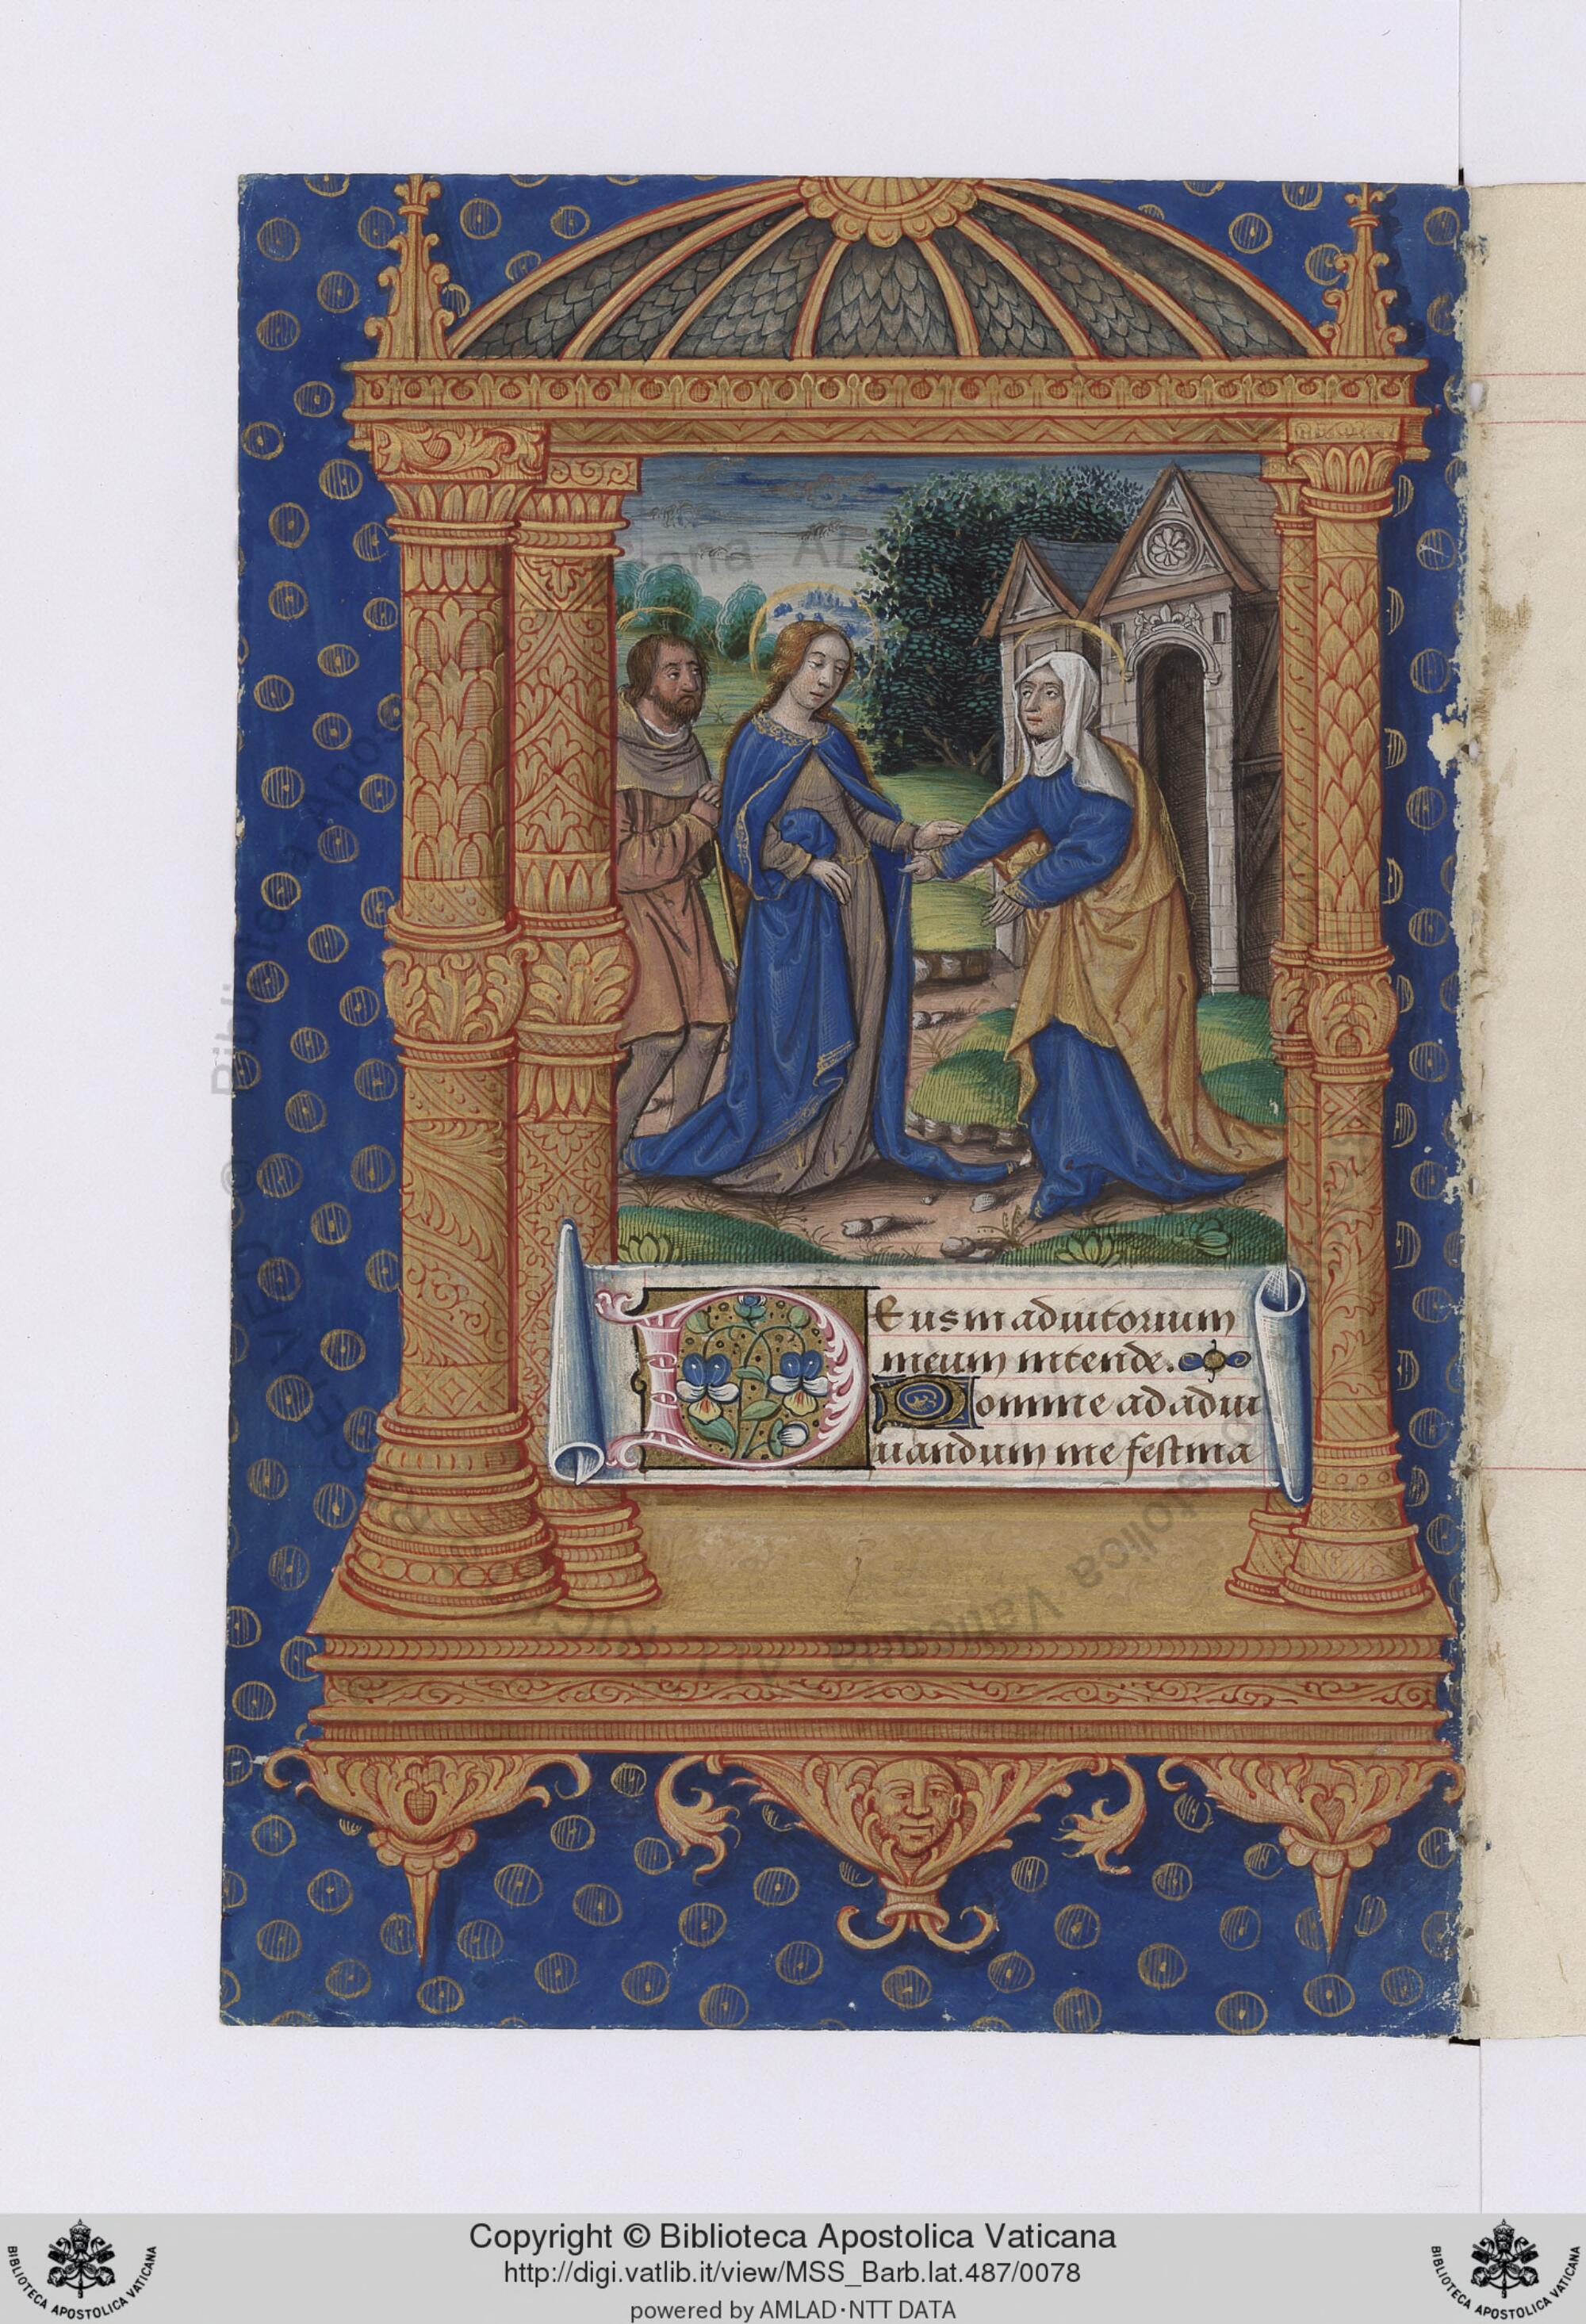 Deus in adiutorium
meum intende.
Domine ad adiu
uandum me festina
Copyright © Biblioteca Apostolica Vaticana
http://digi.vatlib.it/view/MSS_Barb.lat.487/0078
powered by AMLAD·NTT DATA
BIBLIOTECA APOSTOLICA VATICANA
BIBLIOTECA APOSTOLICA VATICANA